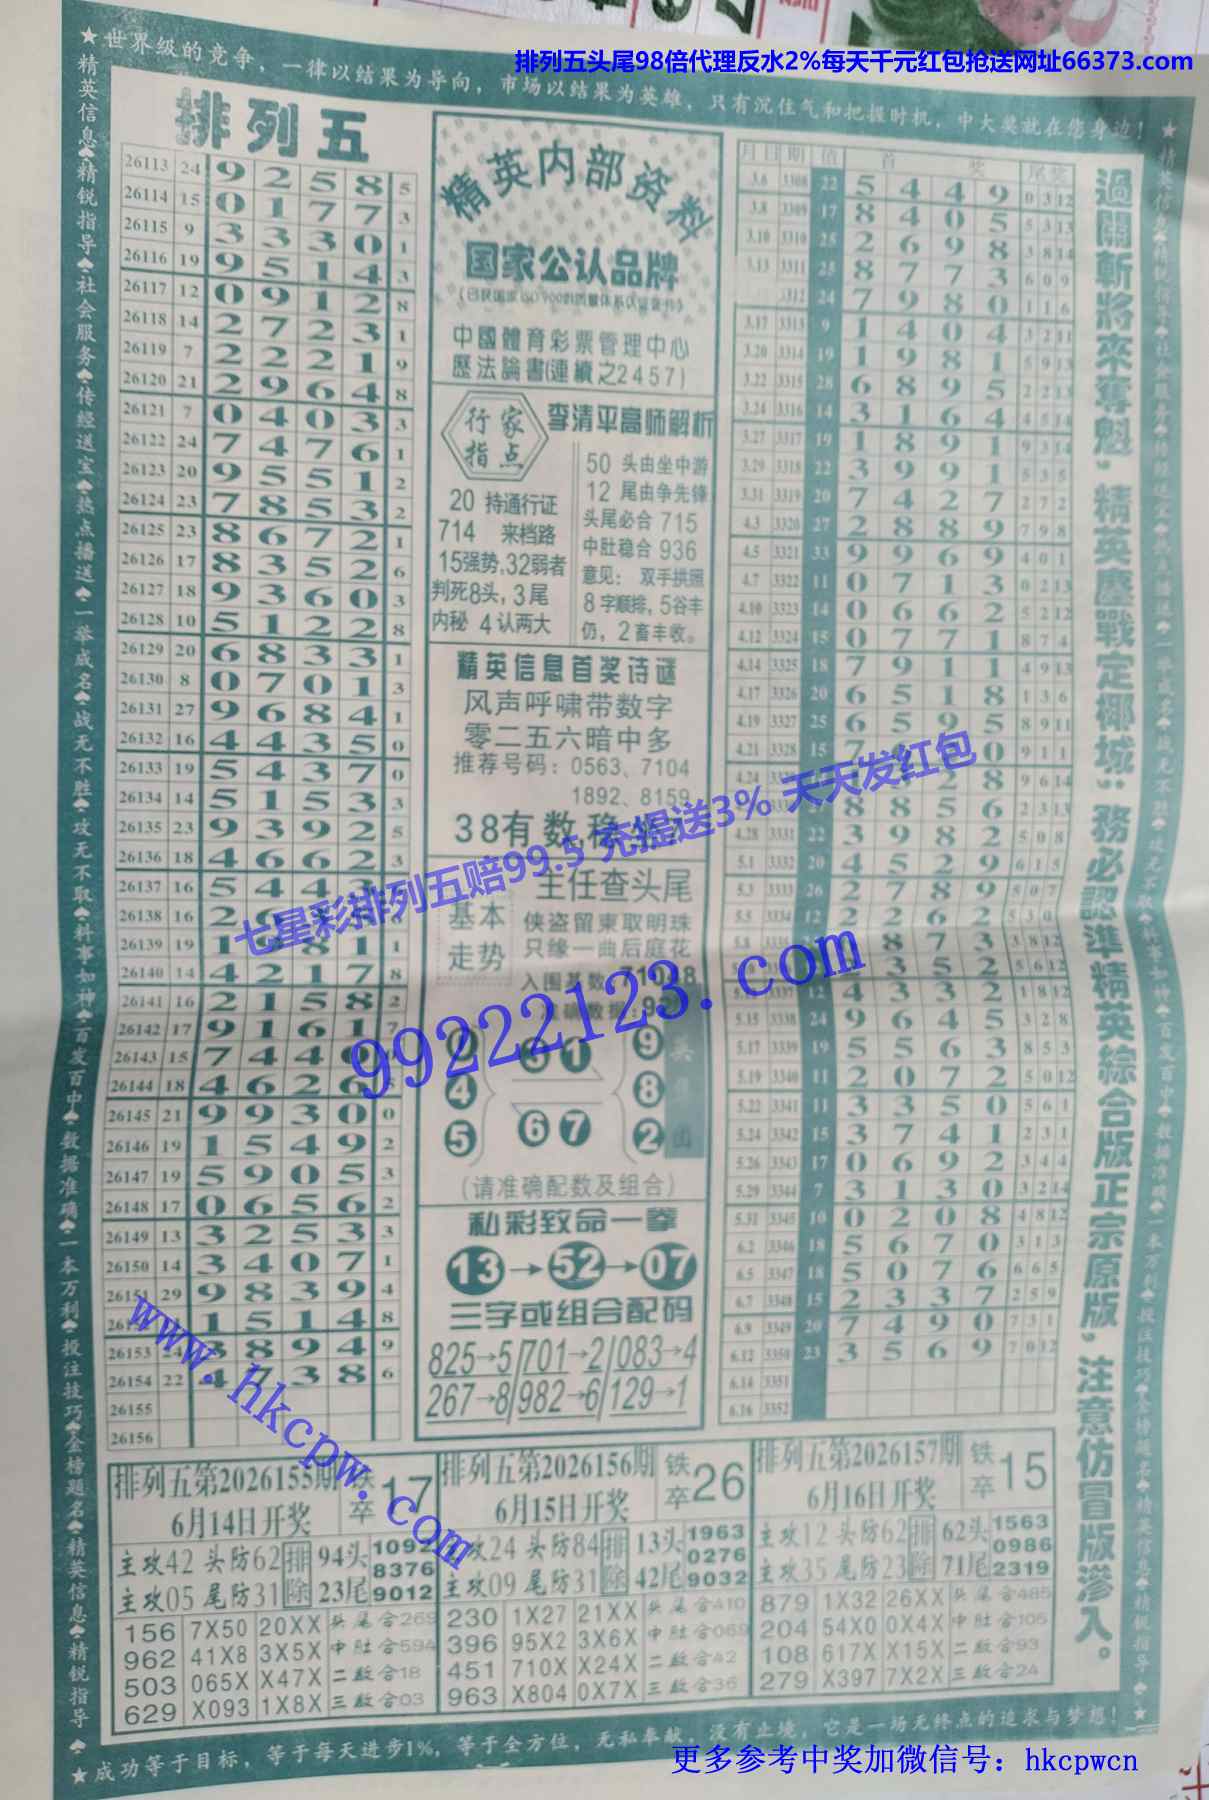 排列五头尾98倍代理反水2%每天千元红包抢送网址66373.com
★世界级的竞争，一律以结果为导向，市场以结果为英雄，只有沉住气和把握时机，中大奖就在您身边！★
精英信息♠精锐指导♠社会服务♠传经送宝♠热点播送♠一举成名♠战无不胜♠攻无不取♠料事如神♠百发百中♠数据准确♠一本万利♠投注技巧♠金榜题名♠精英信息♠精锐指导♠
排列五
26113 24 9 2 5 8 5
26114 15 0 1 7 7 3
26115 9 3 3 3 0 1
26116 19 9 5 1 4 3
26117 12 0 9 1 2 8
26118 14 2 7 2 3 1
26119 7 2 2 2 1 9
26120 21 2 9 6 4 8
26121 7 0 4 0 3 3
26122 24 7 4 7 6 1
26123 20 9 5 5 1 2
26124 23 7 8 5 3 2
26125 23 8 6 7 2 1
26126 17 8 3 5 2 6
26127 18 9 3 6 0 3
26128 10 5 1 2 2 8
26129 20 6 8 3 3 1
26130 8 0 7 0 1 3
26131 27 9 6 8 4 1
26132 16 4 4 3 5 0
26133 19 5 4 3 7 0
26134 14 5 1 5 3 3
26135 23 9 3 9 2 5
26136 18 4 6 6 2 3
26137 16 5 4 4
26138 16 2
26139 19 1 9 8 1 1
26140 14 4 2 1 7 8
26141 16 2 1 5 8 2
26142 17 9 1 6 1 7
26143 15 7 4 4
26144 18 4 6 2 6
26145 21 9 9 3 0 0
26146 19 1 5 4 9 2
26147 19 5 9 0 5 3
26148 17 0 6 5 6 2
26149 13 3 2 5 3 3
26150 14 3 4 0 7 1
26151 29 9 8 3 9 4
1 5 1 4 8
26153 24 3 8 9 4 9
26154 22 4 7 3 8 6
26155
26156
精英内部资料
国家公认品牌
中國體育彩票管理中心
歷法論書(連續之2457)
行家指点
李清平高师解析
20 持通行证
714 来档路
15强势,32弱者
判死8头,3尾
内秘 4认两大
50 头由坐中游
12 尾由争先锋
头尾必合 715
中肚稳合 936
意见： 双手拱照
8字顺排,5谷丰
仍,2畜丰收。
精英信息首奖诗谜
风声呼啸带数字
零二五六暗中多
推荐号码：0563、7104
1892、8159
38有数,稳
基本走势
主任查头尾
侠盗留柬取明珠
只缘一曲后庭花
入围基数:71
准确数据:
4
5
1
6 7
9
8
2
(请准确配数及组合)
私彩致命一拳
13→52→07
三字或组合配码
825→5/701→2/083→4
267→8/982→6/129→1
月 日 期 值 首 奖 尾奖
3.6 3308 22 5 4 4 9 0 3 12
3.8 3309 17 8 4 0 5 5 3 13
3.10 3310 25 2 6 9 8 3 8 14
3.13 3311 25 8 7 7 3 6 0 9
3312 24 7 9 8 0 1 1 6
3.17 3313 9 1 4 0 4 3 2 11
3.20 3314 19 1 9 8 1 5 9 13
3.22 3315 28 6 8 9 5 2 2 13
3.24 3316 14 3 1 6 4 4 5 14
3.27 3317 19 1 8 9 1 9 3 14
3.29 3318 22 3 9 9 1 5 3 5
3.31 3319 20 7 4 2 7 2 7 2
4.3 3320 27 2 8 8 9 7 9 8
4.5 3321 33 9 9 6 9 4 0 1
4.7 3322 11 0 7 1 3 0 2 13
4.10 3323 14 0 6 6 2 5 2 12
4.12 3324 15 0 7 7 1 8 7 4
4.14 3325 18 7 9 1 1 4 9 13
4.17 3326 20 6 5 1 8 1 3 6
4.19 3327 25 6 5 9 5 8 9 11
4.21 3328 15 7 0 9 1 1
4.24 2 8 9 6 14
8 8 5 6 2 3 13
4.28 3331 22 3 9 8 2 5 0 8
5.1 3332 20 4 5 2 9 6 1 5
5.3 3333 26 2 7 8 9 5 0 7
5.5 3334 12 2 2 6 2 5 3 0
5.8 8 7 3 3 8 12
3 5 2 5 6 12
3337 12 4 3 3 2 1 8 12
5.15 3338 24 9 6 4 5 3 2 8
5.17 3339 19 5 5 6 3 8 5 3
5.19 3340 11 2 0 7 2 5 0 12
5.22 3341 11 3 3 5 0 5 6 1
5.24 3342 15 3 7 4 1 2 3 1
5.26 3343 17 0 6 9 2 3 4 4
5.29 3344 7 3 1 3 0 3 2 14
5.31 3345 10 0 2 0 8 4 8 12
6.2 3346 18 5 6 7 0 3 1 3
6.5 3347 18 5 0 7 6 6 6 5
6.7 3348 15 2 3 3 7 2 5 9
6.9 3349 20 7 4 9 0 7 3 1
6.12 3350 23 3 5 6 9 7 0 12
6.14 3351
6.16 3352
過關斬將來奪魁，精英鏖戰定椰城；務必認準精英綜合版正宗原版，注意仿冒版滲入。
七星彩排列五赔99.5 充提送3% 天天发红包
99222123.com
www.hkcpw.com
排列五第2026155期
6月14日开奖
铁卒17
主攻42 头防62 排除 94头
主攻05 尾防31 23尾
1092
8376
9012
156 7X50 20XX 头尾合269
962 41X8 3X5X 中肚合594
503 065X X47X 二数合18
629 X093 1X8X 三数合03
排列五第2026156期
6月15日开奖
铁卒26
主攻24 头防84 排除 13头
主攻09 尾防31 42尾
1963
0276
9032
230 1X27 21XX 头尾合410
396 95X2 3X6X 中肚合069
451 710X X24X 二数合42
963 X804 0X7X 三数合36
排列五第2026157期
6月16日开奖
铁卒15
主攻12 头防62 排除 62头
主攻35 尾防23 71尾
1563
0986
2319
879 1X32 26XX 头尾合485
204 54X0 0X4X 中肚合105
108 617X X15X 二数合93
279 X397 7X2X 三数合24
★成功等于目标，等于每天进步1%，等于全方位，无私奉献，没有止境，它是一场无终点的追求与梦想！
更多参考中奖加微信号：hkcpwcn